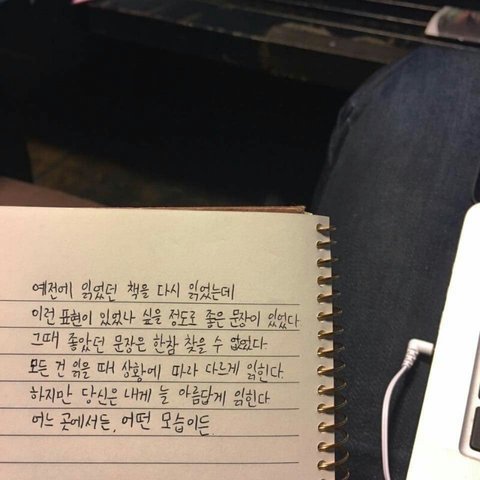 예전에 읽었던 책을 다시 읽었는데
이런 표현이 있었나 싶을 정도로 좋은 문장이 있었다
그때 좋았던 문장은 한참 찾을 수 없었다.
모든 건 읽을 때 상황에 따라 다르게 읽힌다.
하지만 당신은 내게 늘 아름답게 읽힌다
어느 곳에서든, 어떤 모습이든.